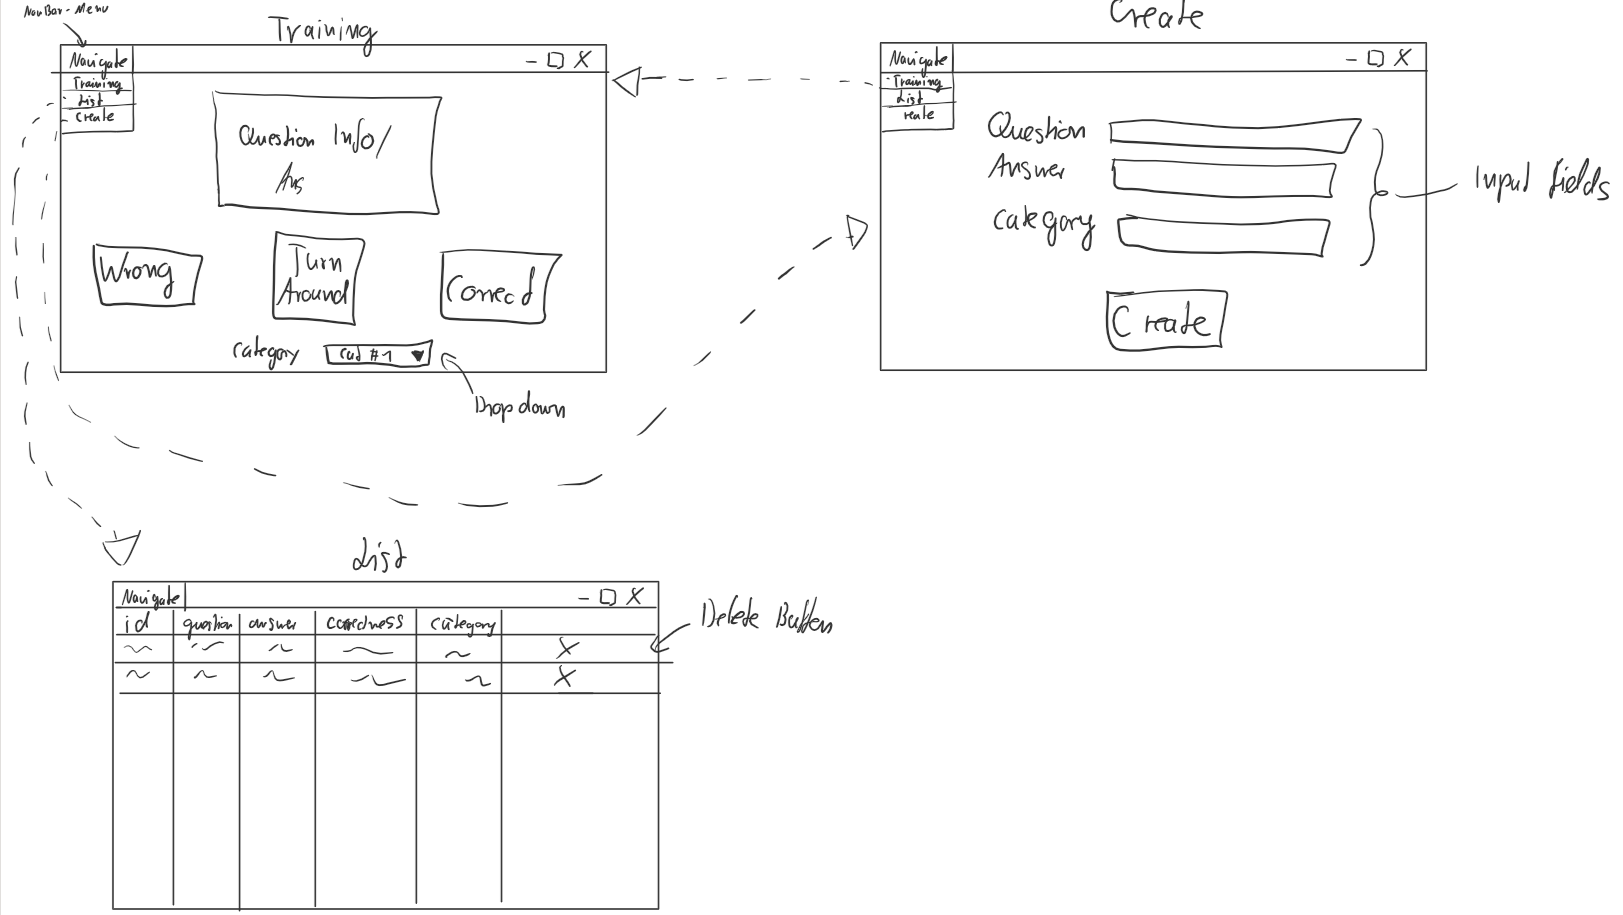 NavBar-Menu
Training
Navigate
- □ X
Training
List
Create
Question Info/
Ans
Wrong
Turn
Around
Correct
Category
Cat #1 ▼
Dropdown
Create
Navigate
- □ X
Training
List
reate
Question
Answer
Category
Input fields
Create
List
Navigate
- □ X
id question answer correctness category
X
X
Delete Button